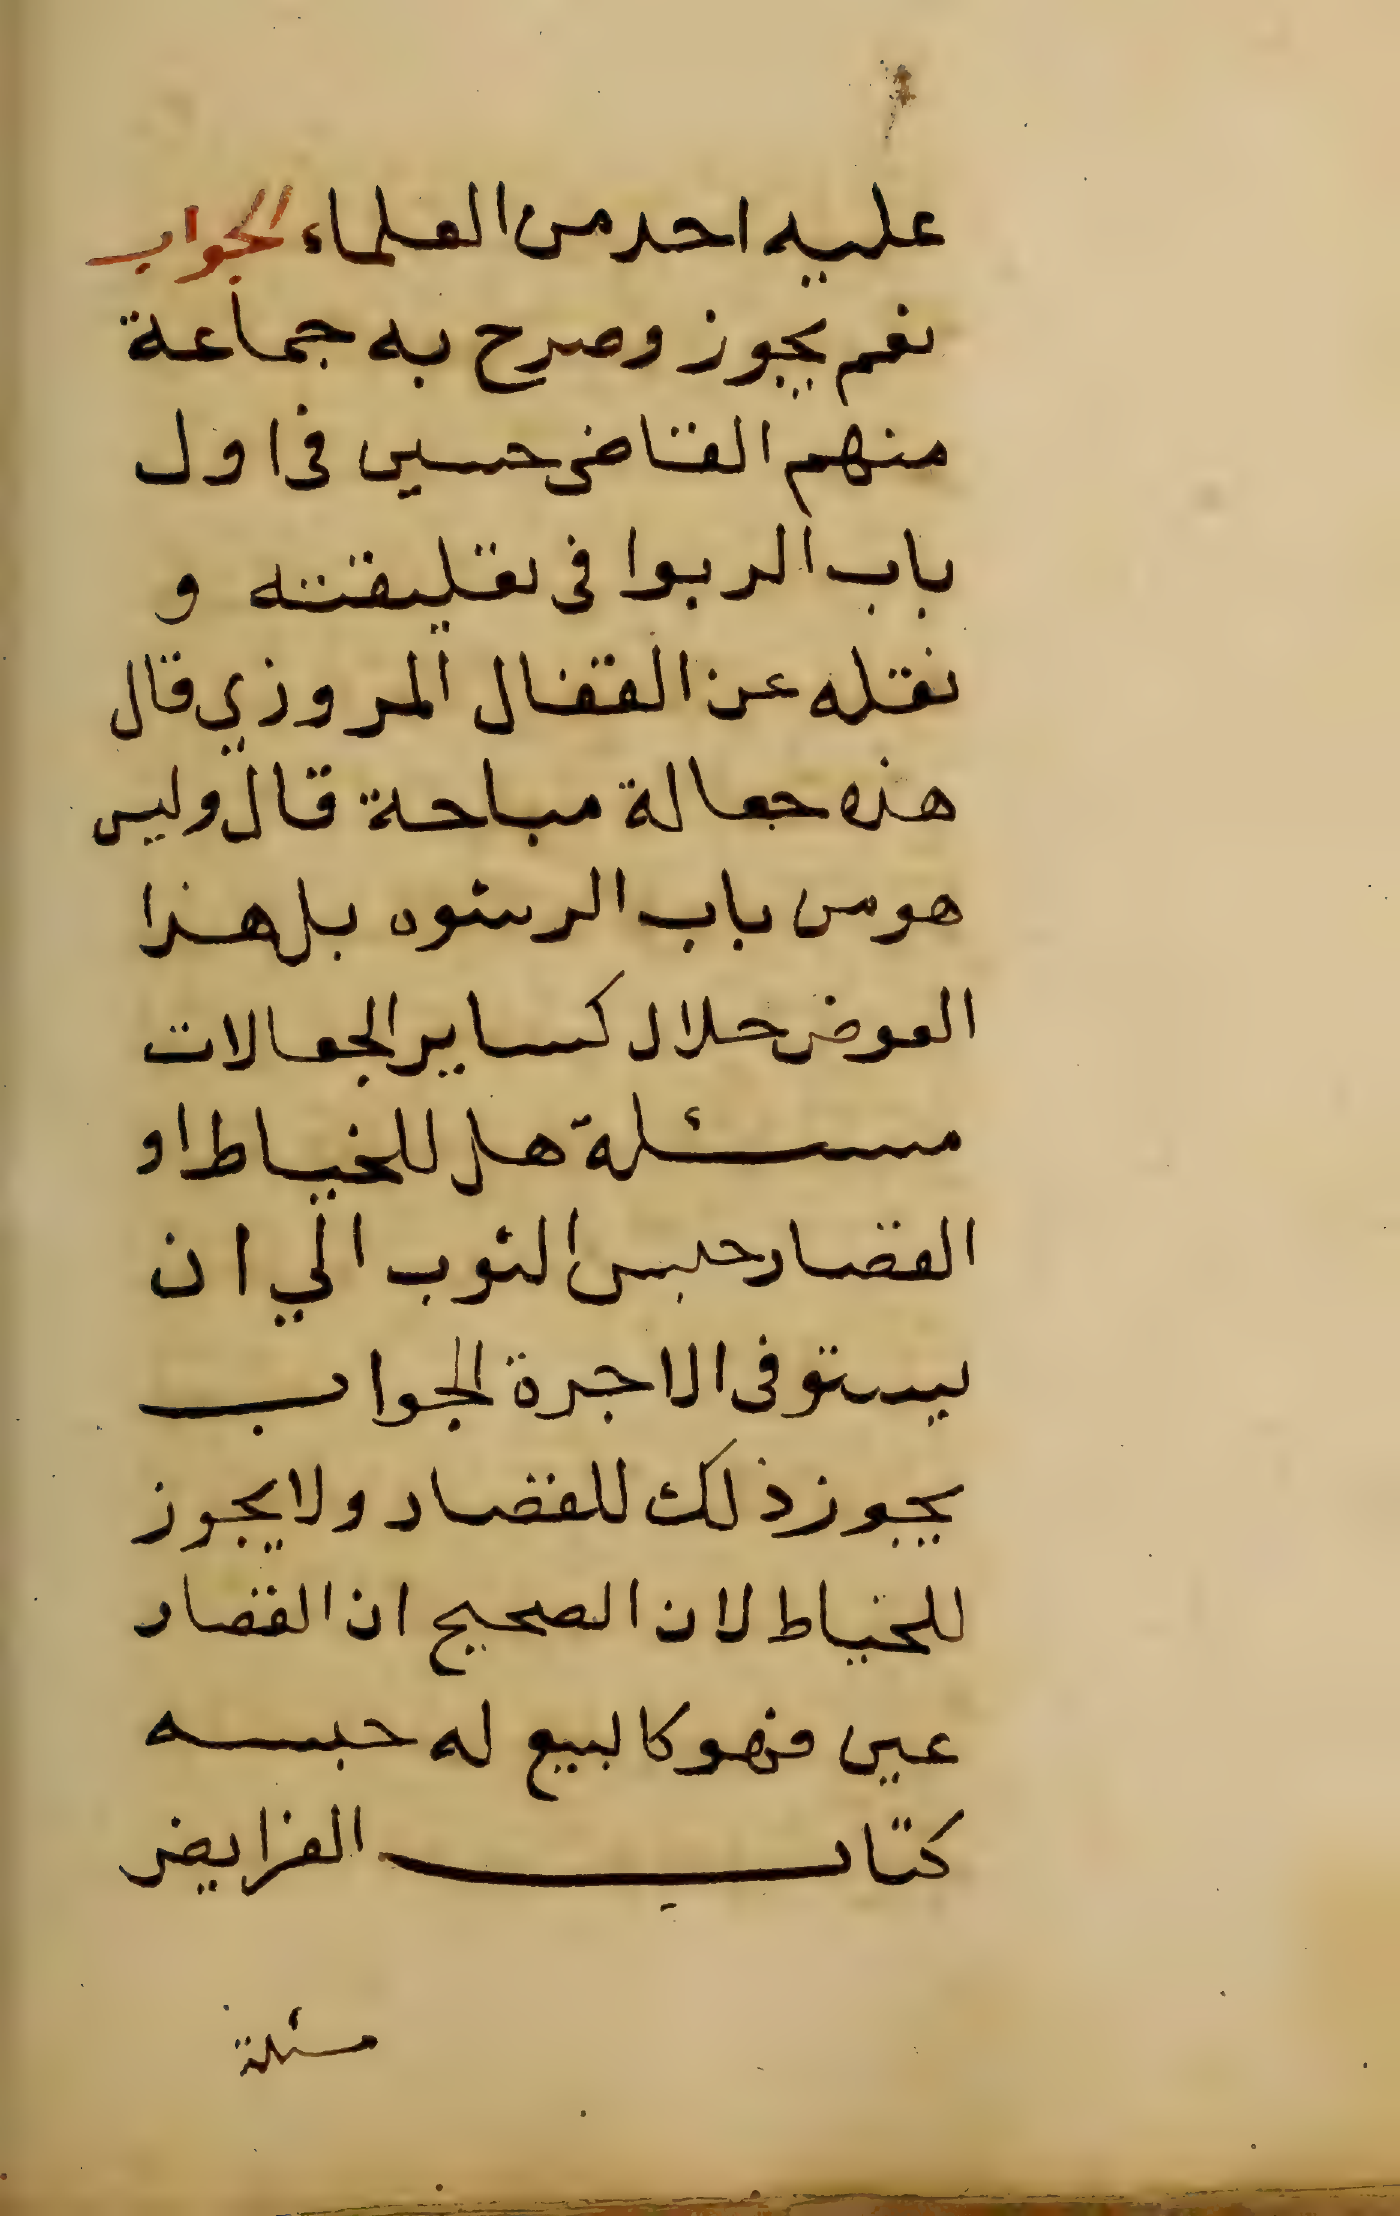 عليه احد من العلماء الجواب
نعم يجوز وصرح به جماعة
منهم القاضى حسين فى اول
باب الربوا فى تعليقته و
نقله عن القفال المروزي قال
هذه جعالة مباحة قال وليس
هو من باب الرشوه بل هذا
العوض حلال كساير الجعالات
مسئلة هل للخياط او
القصار حبس الثوب الي ان
يستوفى الاجرة الجواب
يجوز ذلك للقصار ولا يجوز
للخياط لان الصحيح ان القصار
عين فهو كالبيع له حبسه
كتاب الفرايض
مسئلة